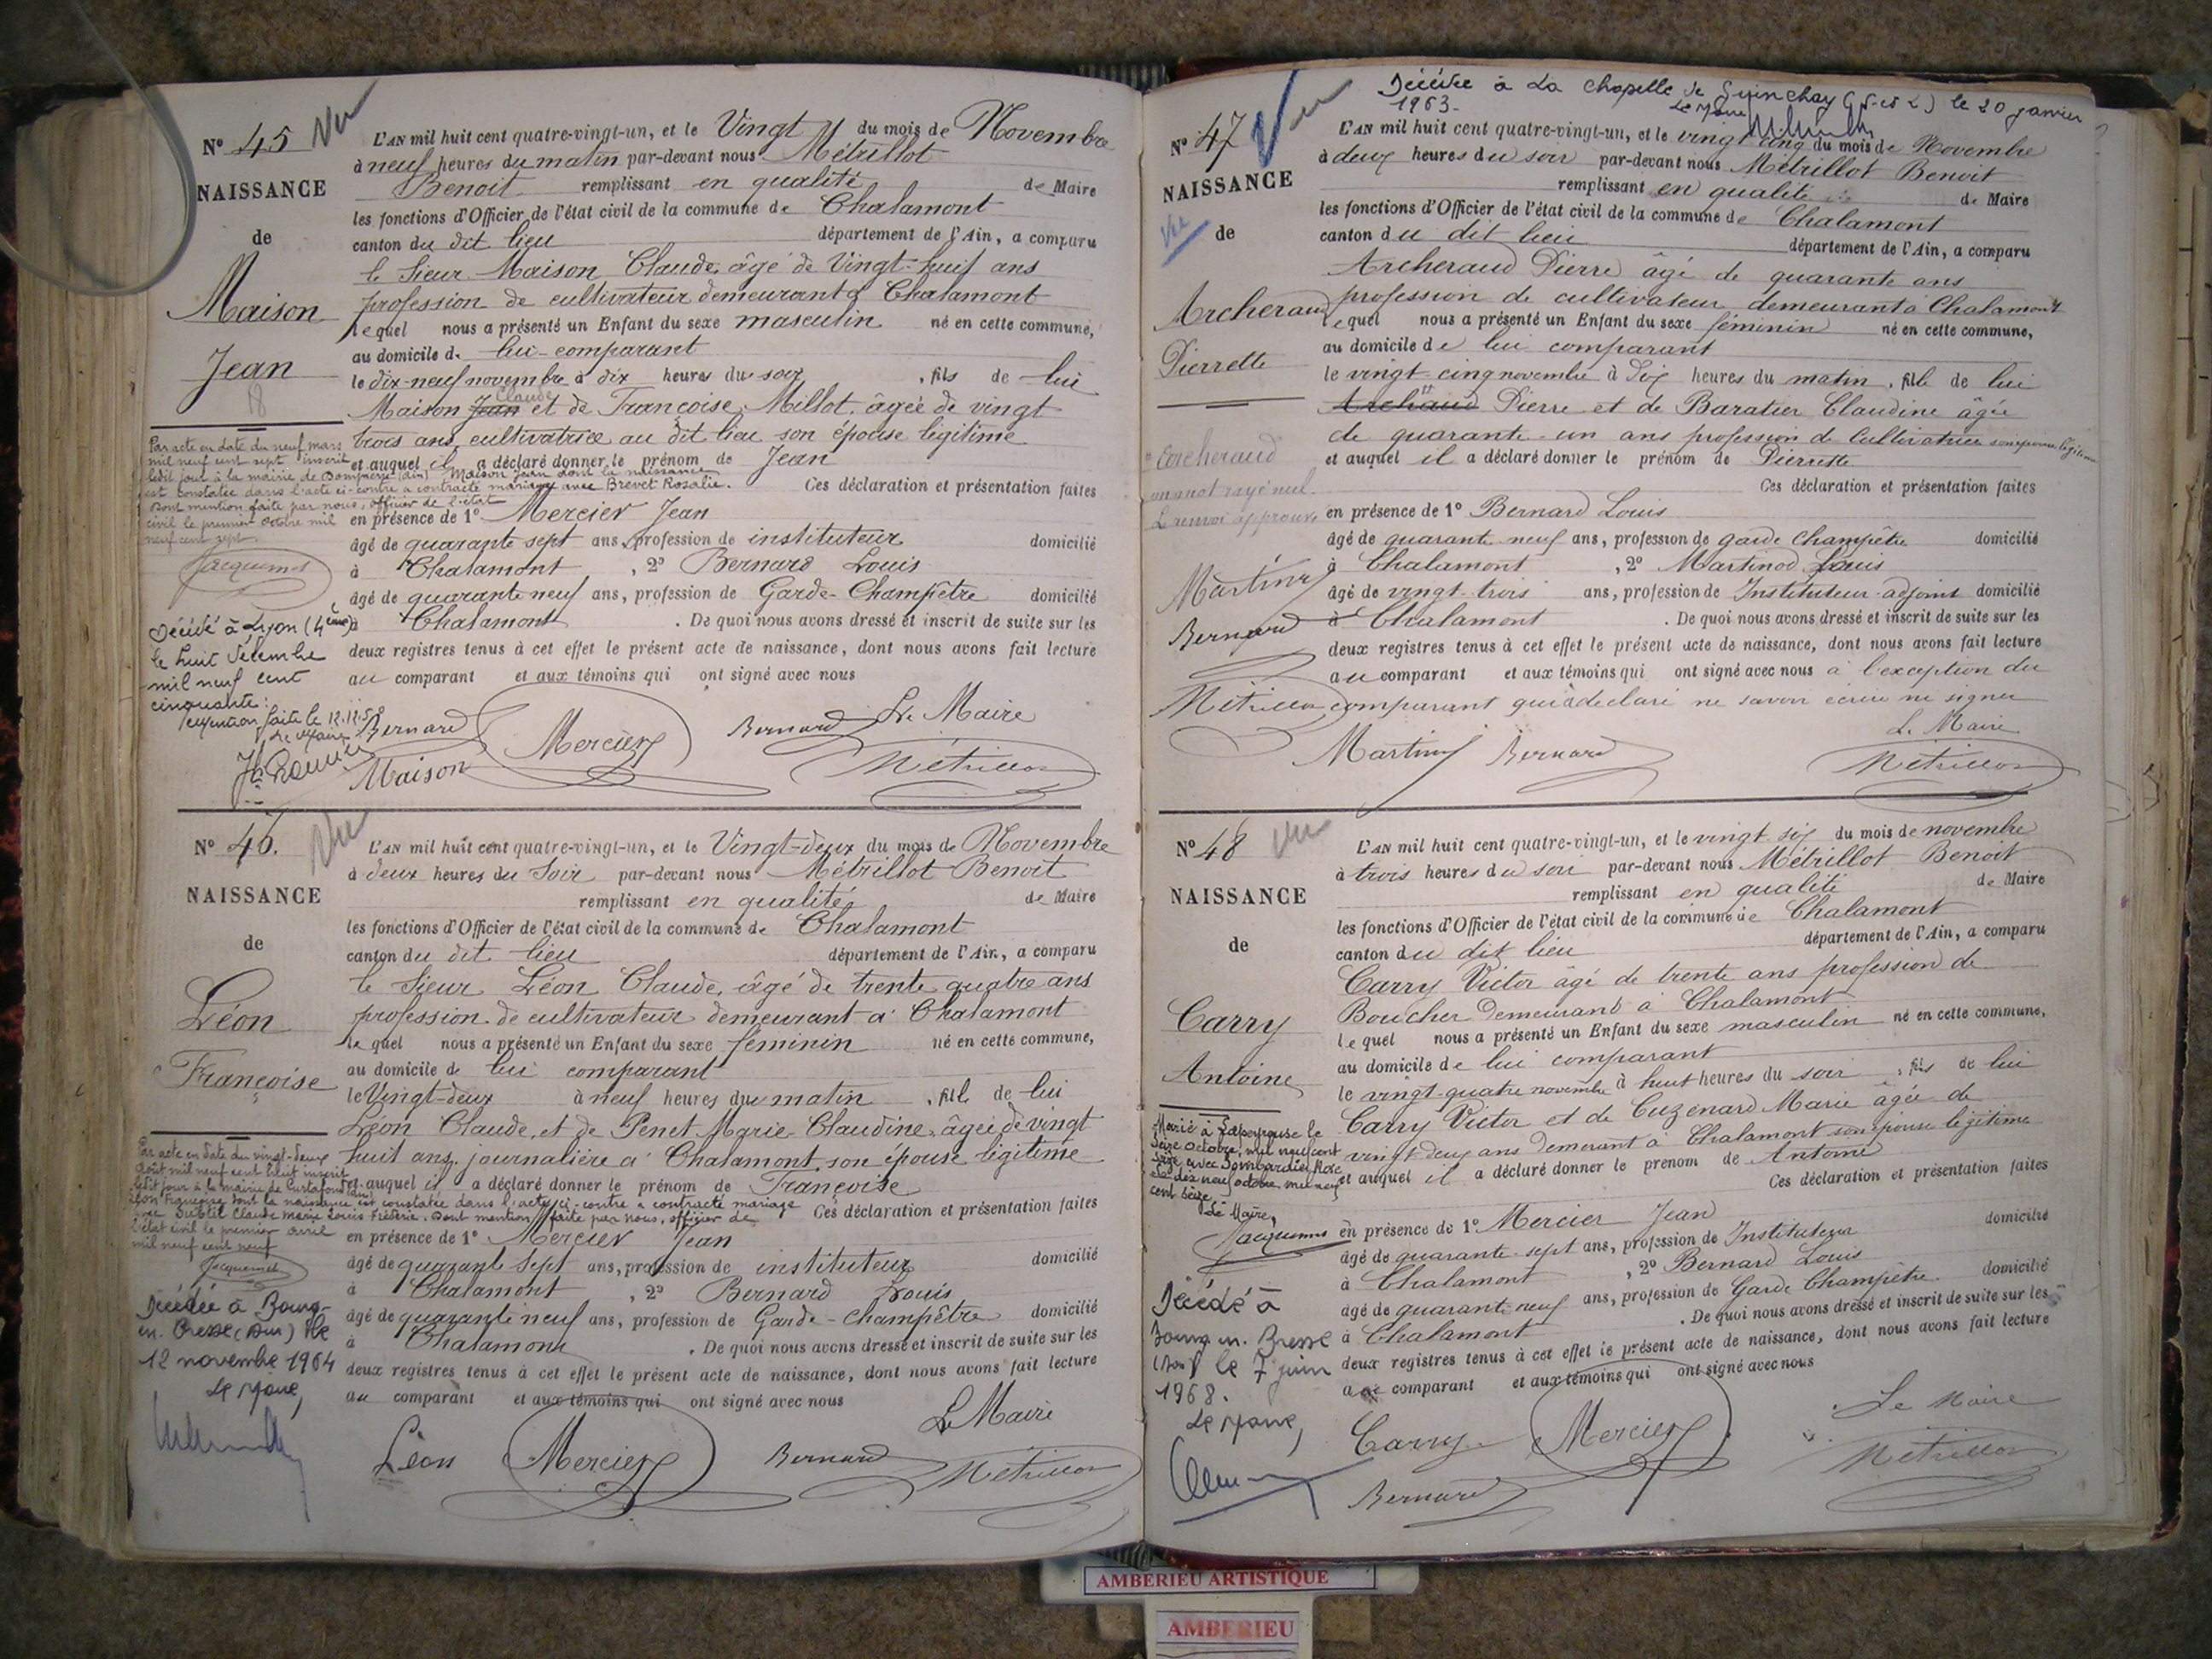 Nº 45 Vu
NAISSANCE
de
Maison
Jean
18
L'AN mil huit cent quatre-vingt-un, et le Vingt du mois de Novembre
à neuf heures du matin par-devant nous Métrillot
Benoit remplissant en qualité de Maire
les fonctions d'Officier de l'état civil de la commune de Chalamont
canton du dit lieu département de l'Ain, a comparu
le Sieur Maison Claude, âgé de Vingt-huit ans
profession de cultivateur demeurant à Chalamont
lequel nous a présenté un Enfant du sexe masculin né en cette commune,
au domicile de lui-comparant
le dix-neuf novembre à dix heures du soir, fils de lui
Maison Jean Claude et de Françoise Millot, âgée de vingt
trois ans, cultivatrice au dit lieu son épouse légitime
et auquel il a déclaré donner le prénom de Jean
Ces déclaration et présentation faites
en présence de 1º Mercier Jean
âgé de quarante sept ans, profession de instituteur domicilié
à Chalamont, 2º Bernard Louis
âgé de quarante neuf ans, profession de Garde-Champêtre domicilié
à Chalamont. De quoi nous avons dressé et inscrit de suite sur les
deux registres tenus à cet effet le présent acte de naissance, dont nous avons fait lecture
au comparant et aux témoins qui ont signé avec nous
Bernard Mercier Bernard Le Maire
Maison Métrillot
Par acte en date du neuf mars
mil neuf cent sept inscrit
ledit jour à la mairie de (Ain) Maison Jean dont la naissance
est constatée dans l'acte ci-contre a contracté mariage avec Brevet Rosalie.
Dont mention faite par nous, officier de l'état
civil le premier octobre mil
neuf cent sept
Jacquemet
Décédé à Lyon (4ème)
le huit décembre
mil neuf cent
cinquante.
mention faite le 12.12.50
Le Maire
Nº 46. Vu
NAISSANCE
de
Léon
Françoise
L'AN mil huit cent quatre-vingt-un, et le Vingt-deux du mois de Novembre
à deux heures du Soir par-devant nous Métrillot Benoit
remplissant en qualité de Maire
les fonctions d'Officier de l'état civil de la commune de Chalamont
canton du dit lieu département de l'Ain, a comparu
le Sieur Léon Claude, âgé de trente quatre ans
profession de cultivateur demeurant à Chalamont
lequel nous a présenté un Enfant du sexe féminin né en cette commune,
au domicile de lui comparant
le Vingt-deux à neuf heures du matin, fille de lui
Léon Claude, et de Penet Marie-Claudine, âgée de vingt
huit ans, journalière à Chalamont, son épouse légitime
et auquel il a déclaré donner le prénom de Françoise
Ces déclaration et présentation faites
en présence de 1º Mercier Jean
âgé de quarante sept ans, profession de instituteur domicilié
à Chalamont, 2º Bernard Louis
âgé de quarante neuf ans, profession de Garde-Champêtre domicilié
à Chalamont. De quoi nous avons dressé et inscrit de suite sur les
deux registres tenus à cet effet le présent acte de naissance, dont nous avons fait lecture
au comparant et aux témoins qui ont signé avec nous
Le Maire
Léon Mercier Bernard Métrillot
Par acte en date du vingt-deux
août mil neuf cent huit inscrit
ledit jour à la mairie de Curtafond (Ain)
Léon Françoise dont la naissance est constatée dans l'acte ci-contre a contracté mariage
avec Claude Marie Louis Frédéric. Dont mention faite par nous, officier de
l'état civil le premier avril
mil neuf cent neuf
Jacquemet
Décédée à Bourg-
en-Bresse (Ain) le
12 novembre 1964
Le Maire,
Nº 47 Vu
Décédée à La Chapelle de Guinchay (S-et-L) le 20 janvier
1963. Le Maire
NAISSANCE
Vu
de
Archeraud
Pierrette
L'AN mil huit cent quatre-vingt-un, et le vingt cinq du mois de Novembre
à deux heures du soir par-devant nous Métrillot Benoit
remplissant en qualité de Maire
les fonctions d'Officier de l'état civil de la commune de Chalamont
canton du dit lieu département de l'Ain, a comparu
Archeraud Pierre âgé de quarante ans
profession de cultivateur demeurant à Chalamont
lequel nous a présenté un Enfant du sexe féminin né en cette commune,
au domicile de lui comparant
le vingt-cinq novembre à dix heures du matin, fille de lui
Archeraud Pierre et de Baratier Claudine âgée
de quarante-un ans profession de Cultivatrice son épouse légitime
et auquel il a déclaré donner le prénom de Pierrette
Ces déclaration et présentation faites
en présence de 1º Bernard Louis
âgé de quarante-neuf ans, profession de garde Champêtre domicilié
à Chalamont, 2º Martinod Louis
âgé de vingt-trois ans, profession de Instituteur-adjoint domicilié
à Chalamont. De quoi nous avons dressé et inscrit de suite sur les
deux registres tenus à cet effet le présent acte de naissance, dont nous avons fait lecture
au comparant et aux témoins qui ont signé avec nous à l'exception du
comparant qui a déclaré ne savoir écrire ni signer
Le Maire
Martinod Bernard Métrillot
Archeraud
un mot rayé nul.
Le renvoi approuvé
Martinod
Bernard
Métrillot
Nº 48 Vu
NAISSANCE
de
Carry
Antoine
L'AN mil huit cent quatre-vingt-un, et le vingt six du mois de novembre
à trois heures du soir par-devant nous Métrillot Benoit
remplissant en qualité de Maire
les fonctions d'Officier de l'état civil de la commune de Chalamont
canton du dit lieu département de l'Ain, a comparu
Carry Victor âgé de trente ans profession de
Boucher demeurant à Chalamont
lequel nous a présenté un Enfant du sexe masculin né en cette commune,
au domicile de lui comparant
le vingt-quatre novembre à huit heures du soir, fils de lui
Carry Victor et de Cuzenard Marie âgée de
vingt-deux ans demeurant à Chalamont son épouse légitime
et auquel il a déclaré donner le prénom de Antoine
Ces déclaration et présentation faites
en présence de 1º Mercier Jean
âgé de quarante-sept ans, profession de Instituteur domicilié
à Chalamont, 2º Bernard Louis
âgé de quarante-neuf ans, profession de Garde Champêtre domicilié
à Chalamont. De quoi nous avons dressé et inscrit de suite sur les
deux registres tenus à cet effet le présent acte de naissance, dont nous avons fait lecture
au comparant et aux témoins qui ont signé avec nous
Le Maire
Carry Mercier Métrillot
Bernard
Marié à Lapeyrouse le
seize octobre, mil neuf cent
seize avec Rose
Le dix neuf octobre mil neuf
cent seize
Le Maire,
Jacquemet
Décédé à
Bourg en Bresse
(Ain) le 7 juin
1968.
Le Maire,
AMBERIEU ARTISTIQUE
AMBERIEU